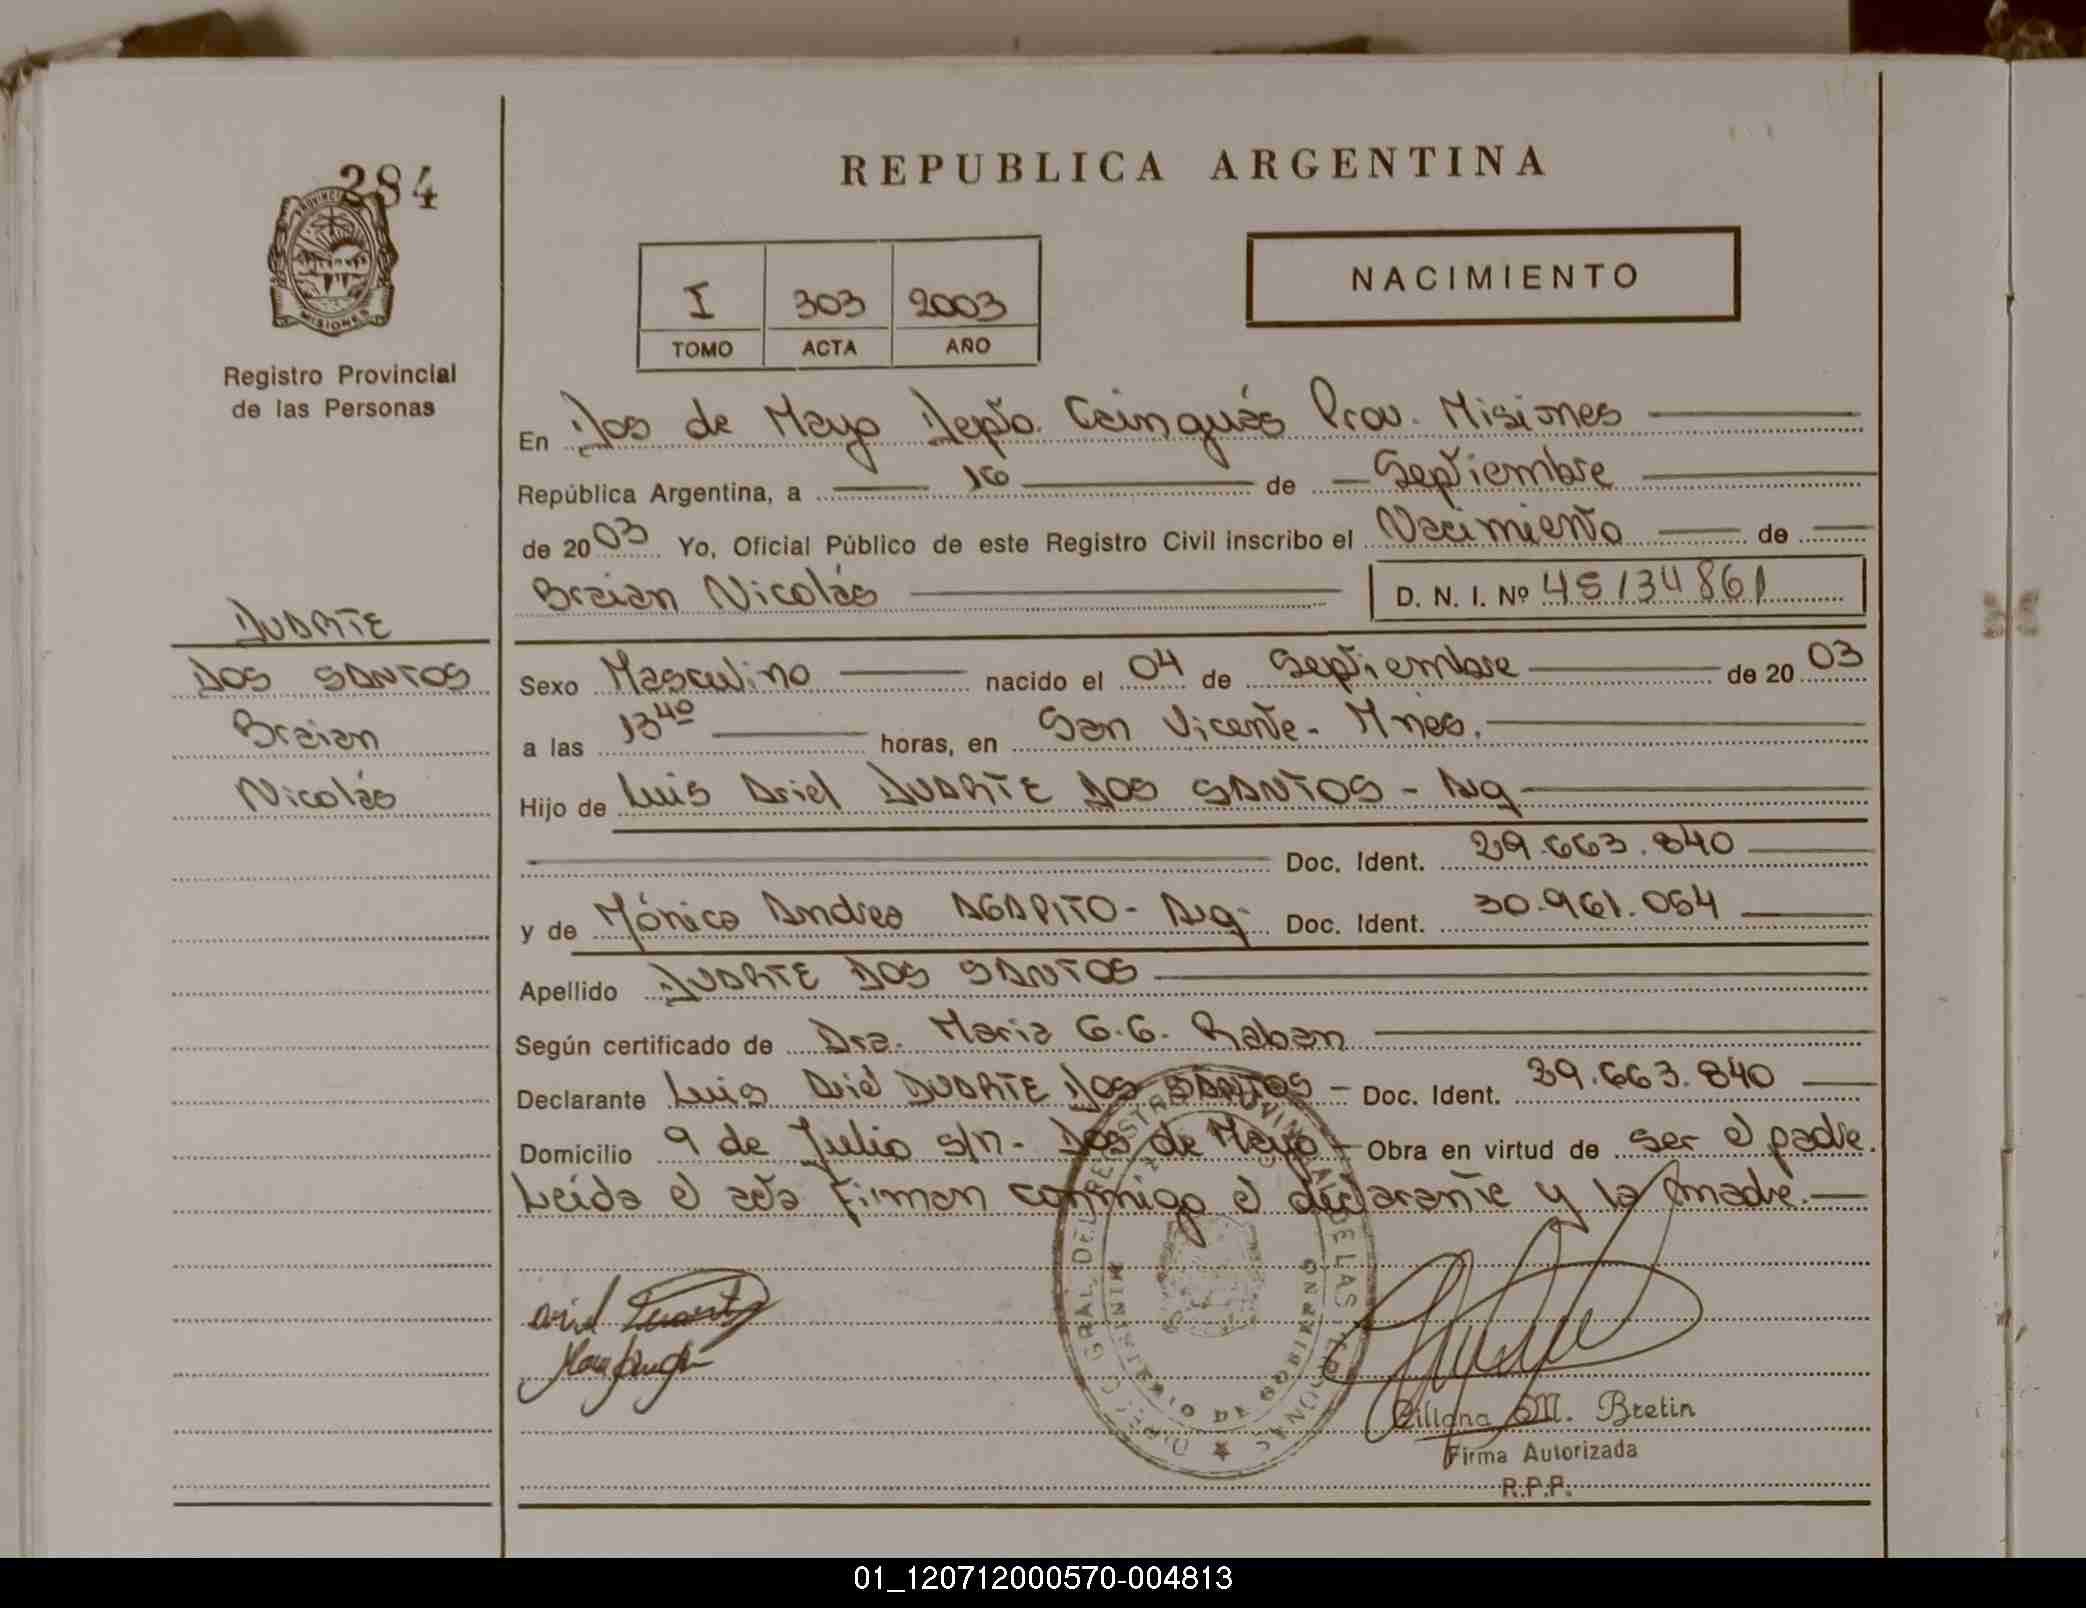 284
REPUBLICA ARGENTINA
NACIMIENTO
I 303 2003
TOMO ACTA AÑO
PROVINCIA
MISIONES
Registro Provincial
de las Personas
En Dos de Mayo Depto. Cainguás Prov. Misiones
República Argentina, a 16 de Septiembre
de 2003 Yo, Oficial Público de este Registro Civil inscribo el Nacimiento de
Braian Nicolás D. N. I. Nº 45134861
DUARTE
DOS SANTOS
Braian
Nicolás
Sexo Masculino nacido el 04 de Septiembre de 2003
a las 13 40 horas, en San Vicente - Mnes.
Hijo de Luis Ariel DUARTE DOS SANTOS - Arg
Doc. Ident. 29.663.840
y de Mónica Andrea AGAPITO - Arg - Doc. Ident. 30.961.054
Apellido DUARTE DOS SANTOS
Según certificado de Dra. Maria G.G. Raban
Declarante Luis Ariel DUARTE DOS SANTOS - Doc. Ident. 29.663.840
Domicilio 9 de Julio s/n - Dos de Mayo - Obra en virtud de ser el padre.
Leída el acta firman conmigo el declarante y la madre.
DIREC. GRAL. DEL REGISTRO PROVINCIAL DE LAS PERSONAS
MINISTERIO DE GOBIERNO
M. Bretin
Firma Autorizada
R.P.P.
01_120712000570-004813